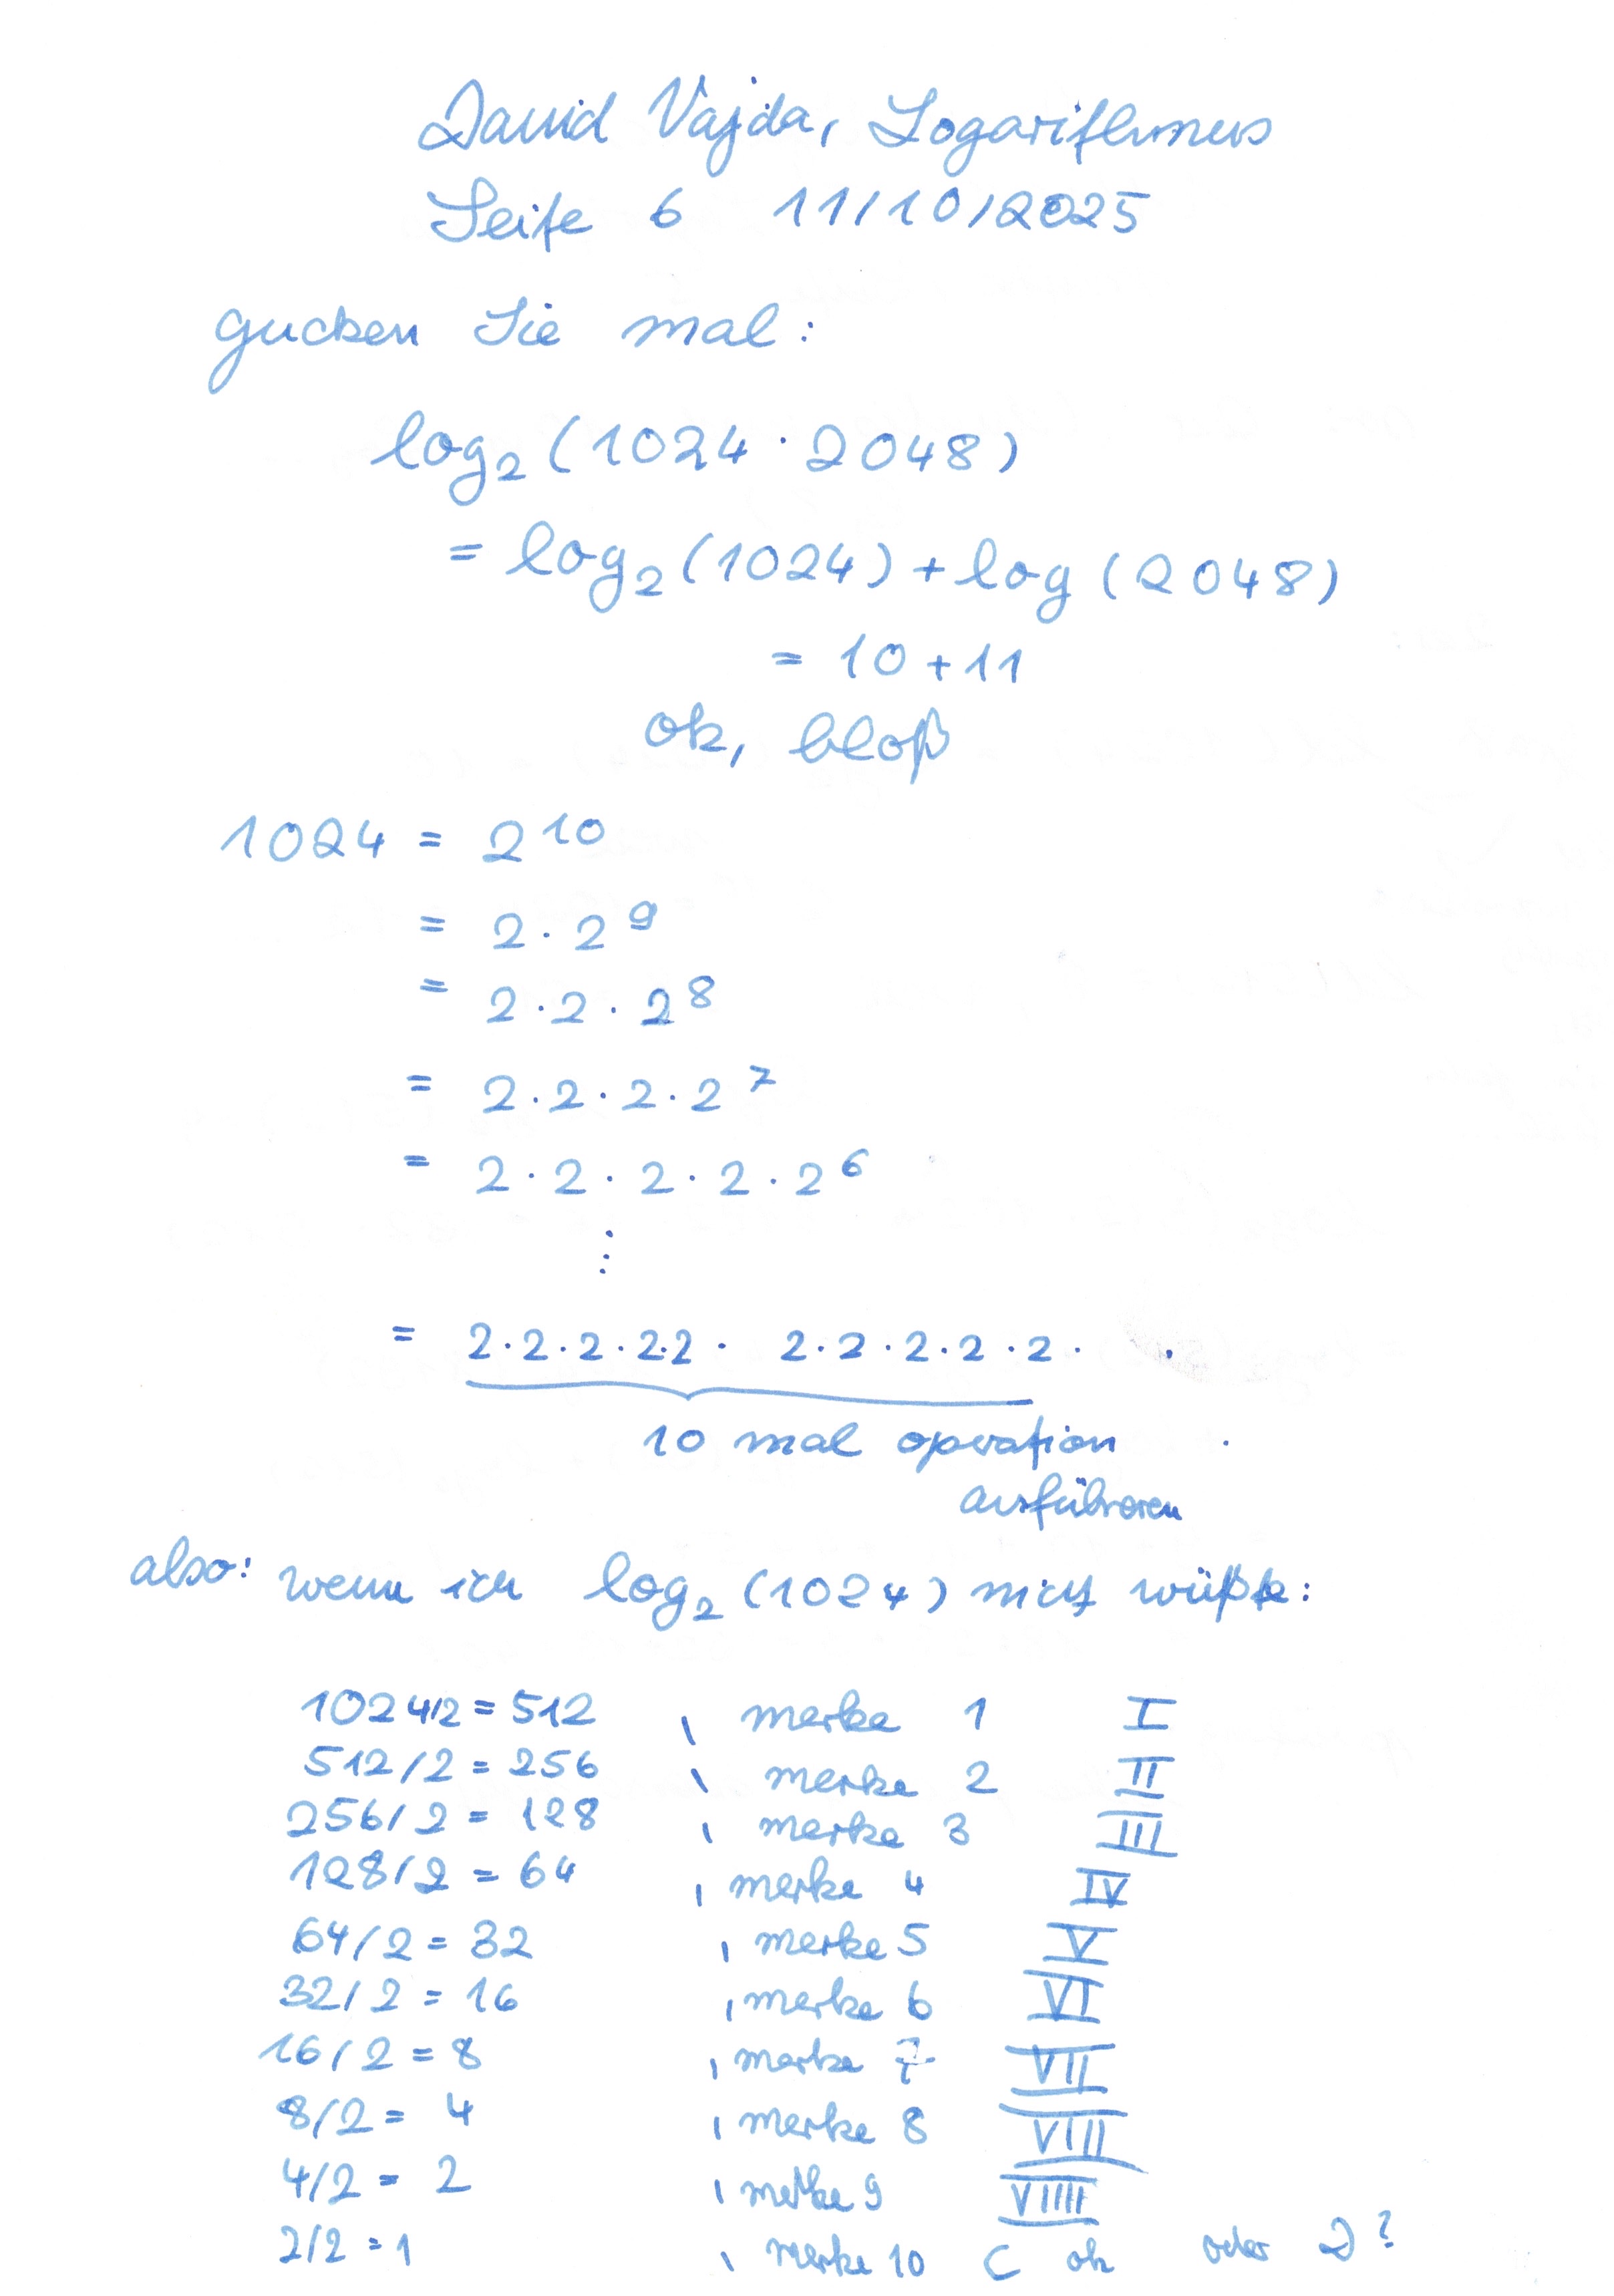 David Vajda, Logarithmus
Seite 6 11/10/2025
gucken Sie mal:
log₂(1024 · 2048)
= log₂(1024) + log(2048)
= 10 + 11
ok, bloß
1024 = 2¹⁰
= 2 · 2⁹
= 2 · 2 · 2⁸
= 2 · 2 · 2 · 2⁷
= 2 · 2 · 2 · 2 · 2⁶
⋮
= 2 · 2 · 2 · 2 · 2 · 2 · 2 · 2 · 2 · 2 ·
10 mal operation
ausführen
also: wenn ich log₂(1024) nicht wüßte:
1024/2 = 512 , merke 1 I
512/2 = 256 , merke 2 II
256/2 = 128 , merke 3 III
128/2 = 64 , merke 4 IV
64/2 = 32 , merke 5 V
32/2 = 16 , merke 6 VI
16/2 = 8 , merke 7 VII
8/2 = 4 , merke 8 VIII
4/2 = 2 , merke 9 VIIII
2/2 = 1 , merke 10 C ok oder D?